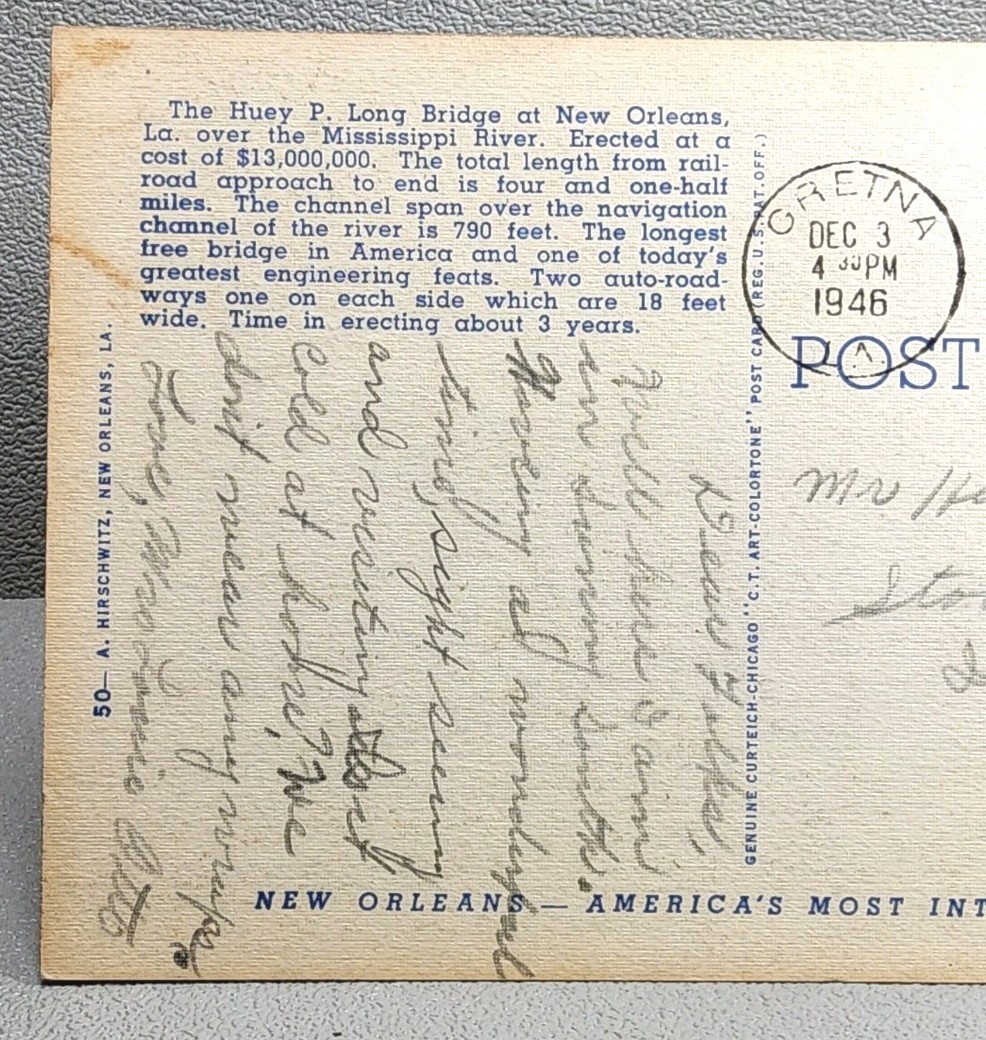 The Huey P. Long Bridge at New Orleans,
La. over the Mississippi River. Erected at a
cost of $13,000,000. The total length from rail-
road approach to end is four and one-half
miles. The channel span over the navigation
channel of the river is 790 feet. The longest
free bridge in America and one of today's
greatest engineering feats. Two auto-road-
ways one on each side which are 18 feet
wide. Time in erecting about 3 years.
50— A. HIRSCHWITZ, NEW ORLEANS, LA.
Dear Folks,
Well here I am
in Sunny South.
Having a wonderful
time, sight seeing
and visiting. Is it
cold at home? We
don't wear any wraps.
Love,
GENUINE CURTEICH-CHICAGO "C.T. ART-COLORTONE" POST CARD (REG. U.S. PAT. OFF.)
GRETNA
DEC 3
4 PM
1946
LA
POST
Mr
NEW ORLEANS — AMERICA'S MOST INT